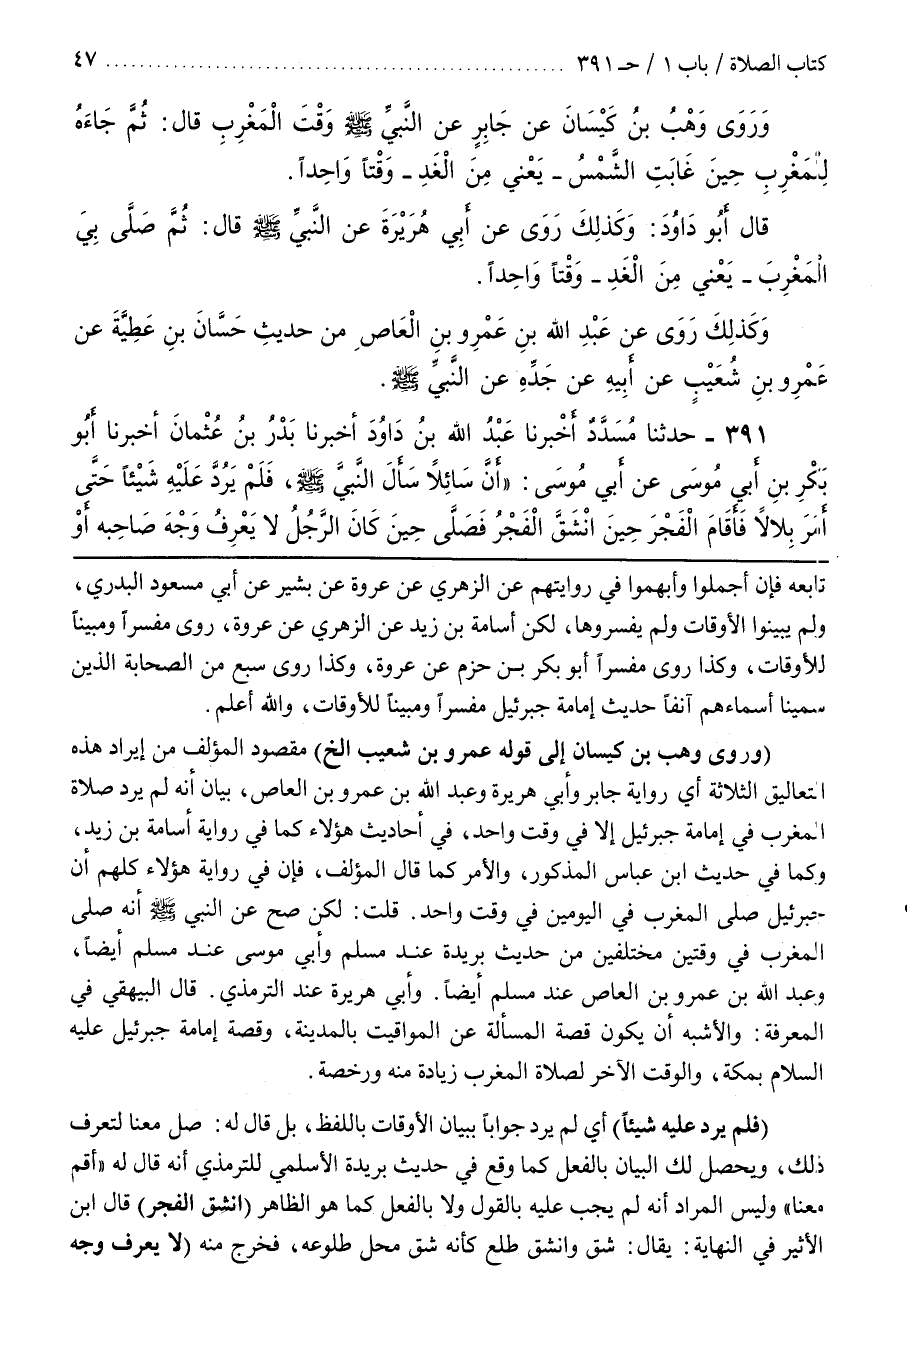 كتاب الصلاة / باب ١ / حـ ٣٩١ ...................................................... ٤٧
وَرَوَى وَهْبُ بنُ كَيْسَانَ عن جَابِرٍ عن النَّبيِّ ﷺ وَقْتَ الْمَغْرِبِ قال: ثُمَّ جَاءَهُ
لِلْمَغْرِبِ حِينَ غَابَتِ الشَّمْسُ ـ يَعْني مِنَ الْغَدِ ـ وَقْتاً وَاحِداً.
قال أَبُو دَاوُدَ: وَكَذلِكَ رَوَى عن أَبي هُرَيْرَةَ عن النَّبيِّ ﷺ قال: ثُمَّ صَلَّى بِيَ
الْمَغْرِبَ ـ يَعْني مِنَ الْغَدِ ـ وَقْتاً وَاحِداً.
وَكَذلِكَ رَوَى عن عَبْدِ الله بنِ عَمْرِو بنِ الْعَاصِ من حديثِ حَسَّانَ بنِ عَطِيَّةَ عن
عَمْرِو بنِ شُعَيْبٍ عن أَبيهِ عن جَدِّهِ عن النَّبيِّ ﷺ.
٣٩١ ـ حدثنا مُسَدَّدٌ أَخْبرنا عَبْدُ الله بنُ دَاوُدَ أخبرنا بَدْرُ بنُ عُثْمانَ أخبرنا أَبُو
بَكْرِ بنِ أَبي مُوسَى عن أَبي مُوسَى: «أَنَّ سَائِلاً سَأَلَ النَّبيَّ ﷺ، فَلَمْ يَرُدَّ عَلَيْهِ شَيْئاً حَتَّى
أَمَرَ بِلالاً فَأَقَامَ الْفَجْرَ حِينَ انْشَقَّ الْفَجْرُ فَصَلَّى حِينَ كَانَ الرَّجُلُ لا يَعْرِفُ وَجْهَ صَاحِبه أَوْ
تابعه فإن أجملوا وأبهموا في روايتهم عن الزهري عن عروة عن بشير عن أبي مسعود البدري،
ولم يبينوا الأوقات ولم يفسروها، لكن أسامة بن زيد عن الزهري عن عروة، روى مفسراً ومبيناً
للأوقات، وكذا روى مفسراً أبو بكر بـن حزم عن عروة، وكذا روى سبع من الصحابة الذين
سمينا أسماءهم آنفاً حديث إمامة جبرئيل مفسراً ومبيناً للأوقات، والله أعلم.
(وروى وهب بن كيسان إلى قوله عمرو بن شعيب الخ) مقصود المؤلف من إيراد هذه
التعاليق الثلاثة أي رواية جابر وأبي هريرة وعبد الله بن عمرو بن العاص، بيان أنه لم يرد صلاة
المغرب في إمامة جبرئيل إلا في وقت واحد، في أحاديث هؤلاء كما في رواية أسامة بن زيد،
وكما في حديث ابن عباس المذكور، والأمر كما قال المؤلف، فإن في رواية هؤلاء كلهم أن
جبرئيل صلى المغرب في اليومين في وقت واحد. قلت: لكن صح عن النبي ﷺ أنه صلى
المغرب في وقتين مختلفين من حديث بريدة عنـد مسلم وأبي موسى عنـد مسلم أيضاً،
وعبد الله بن عمرو بن العاص عند مسلم أيضاً. وأبي هريرة عند الترمذي. قال البيهقي في
المعرفة: والأشبه أن يكون قصة المسألة عن المواقيت بالمدينة، وقصة إمامة جبرئيل عليه
السلام بمكة، والوقت الآخر لصلاة المغرب زيادة منه ورخصة.
(فلم يرد عليه شيئاً) أي لم يرد جواباً ببيان الأوقات باللفظ، بل قال له: صل معنا لتعرف
ذلك، ويحصل لك البيان بالفعل كما وقع في حديث بريدة الأسلمي للترمذي أنه قال له «أقم
معنا» وليس المراد أنه لم يجب عليه بالقول ولا بالفعل كما هو الظاهر (انشق الفجر) قال ابن
الأثير في النهاية: يقال: شق وانشق طلع كأنه شق محل طلوعه، فخرج منه (لا يعرف وجه